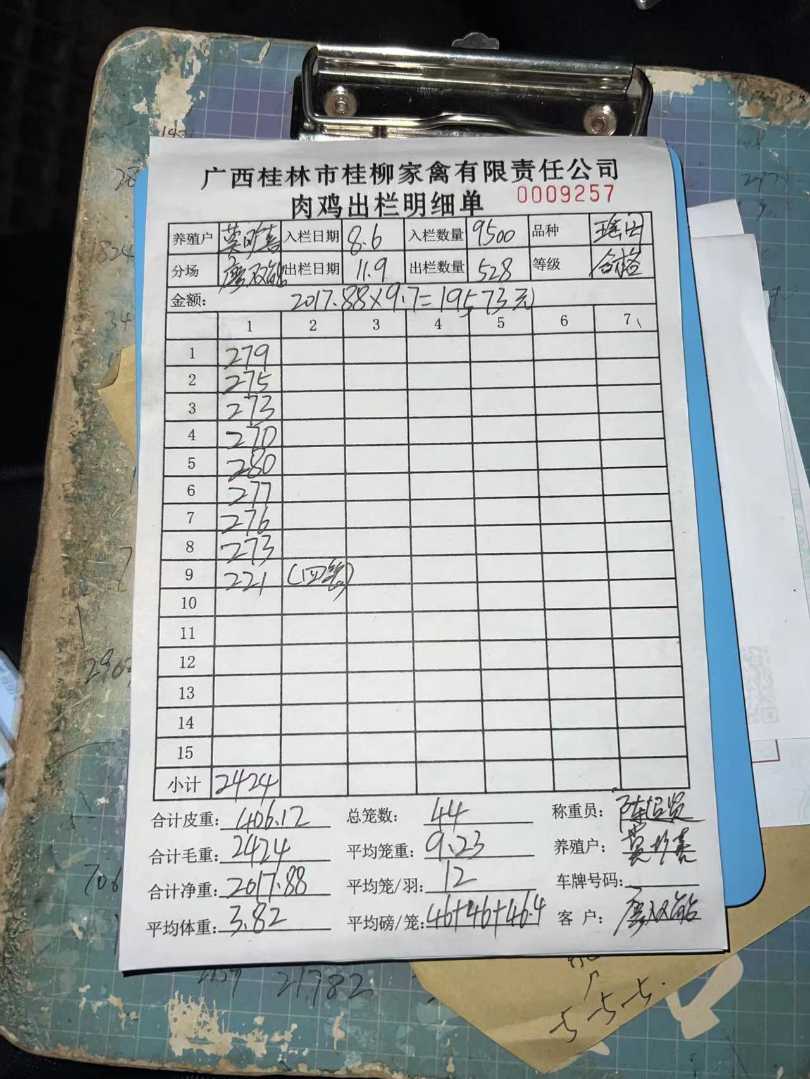 广西桂林市桂柳家禽有限责任公司
肉鸡出栏明细单 0009257
养殖户 入栏日期 8.6 入栏数量 9500 品种 瑶山
分场 廖双能 出栏日期 11.9 出栏数量 528 等级 合格
金额: 2017.88×9.7=19573元
1 2 3 4 5 6 7
1 279
2 275
3 273
4 270
5 280
6 277
7 276
8 273
9 221 (四笼)
10
11
12
13
14
15
小计 2424
合计皮重: 406.12 总笼数: 44 称重员:
合计毛重: 2424 平均笼重: 9.23 养殖户:
合计净重: 2017.88 平均笼/羽: 12 车牌号码:
平均体重: 3.82 平均磅/笼: 46+46+46.4 客户: 廖双能
21782